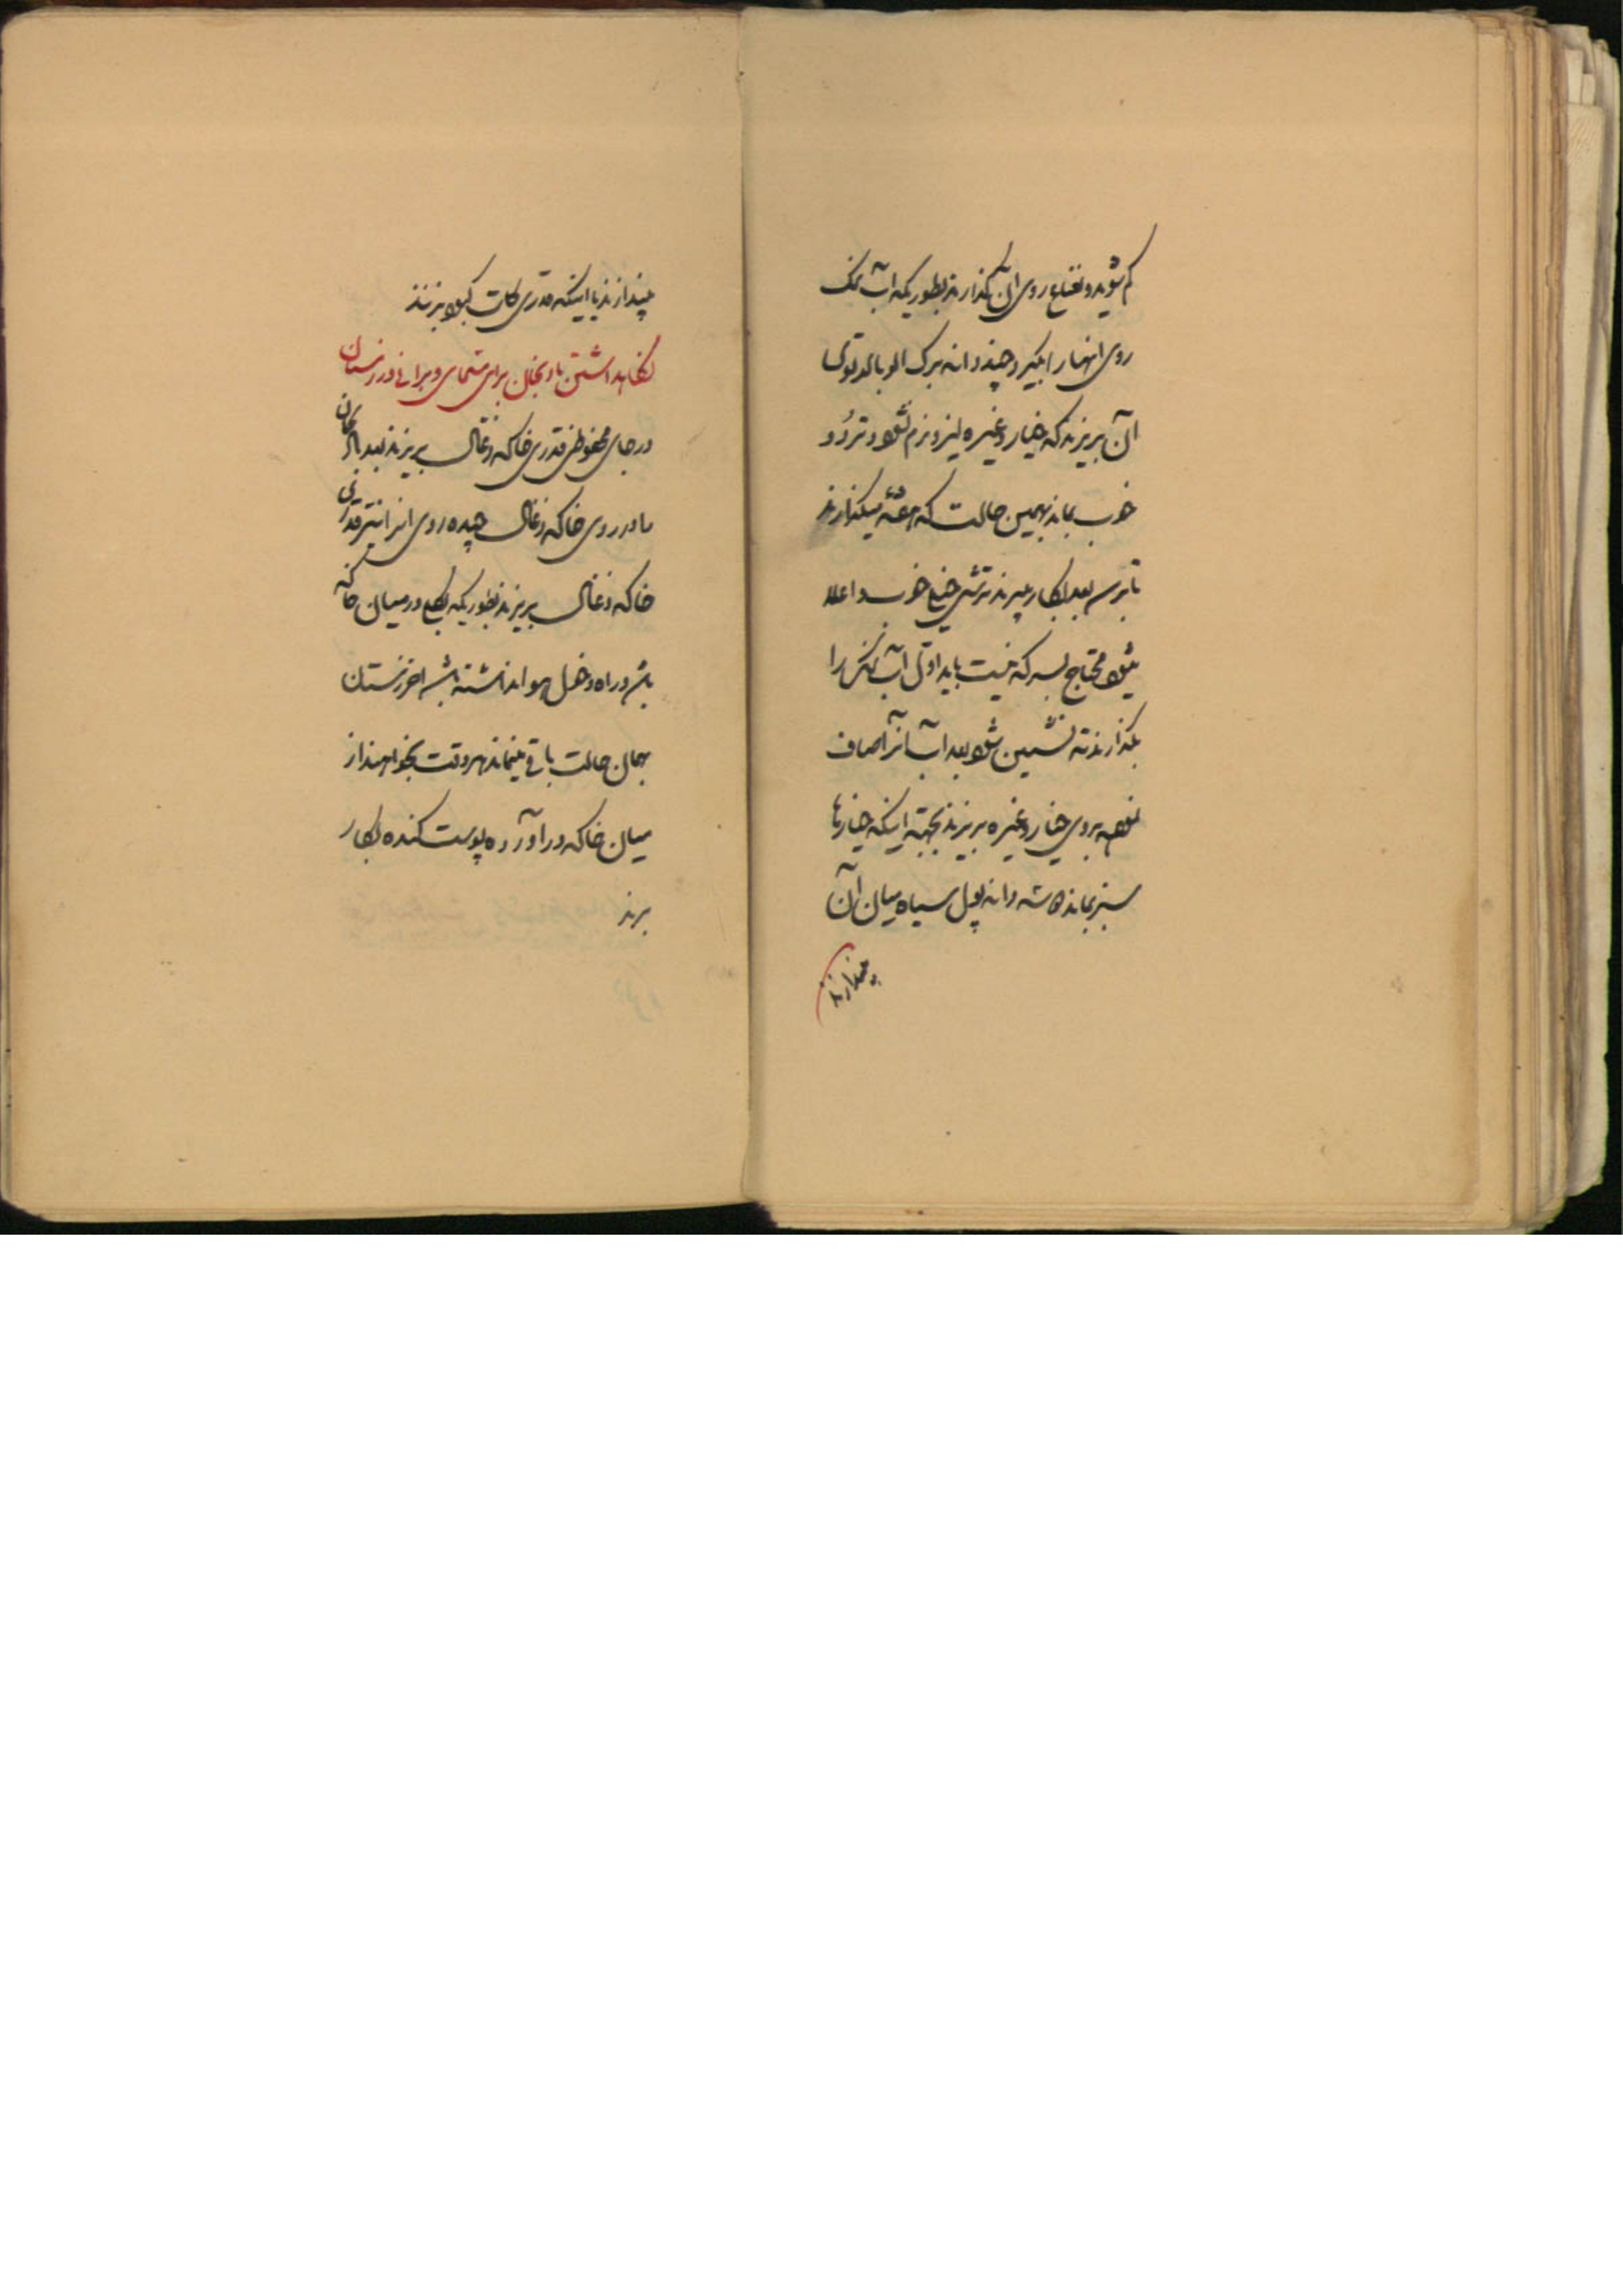 کم شوید و نعناع روی آن بگذارند بطوریکه آب نمک
روی انهارا بگیرد چند دانه برک الوبالو توی
آن بریزند که خیار و غیره لیز و نرم نشود و تُرد و
خوب بماند بهمین حالت که میگذارند
تا برسد بعد بکار میبرند ترشی خیلی خوب و اعلا
میشود محتاج بسرکه نیست باید اول آب نمک را
بگذارند ته نشین شود بعد آب آنرا صاف
نموده بروی خیار و غیره بریزند بجهته اینکه خیارها
سبز بماند دانه پول سیاه میان آن
بیندازند
بیندازند یا اینکه قدری کات کبود بزنند
نگاهداشتن بادنجان برای مسمای و بورانی در زمستان
در جای محفوظی قدری خاکه ذغال بریزند بعد بادنجان
را در روی خاکه ذغال چیده روی انرا نیز قدری
خاکه ذغال بریزند بطوریکه در میان خاکه
باشد و راه دخل هوا نداشته باشد اخر زمستان
بهمان حالت باقی میماند هر وقت بخواهند از
میان خاکه در آورده پوست کنده بکار
برند